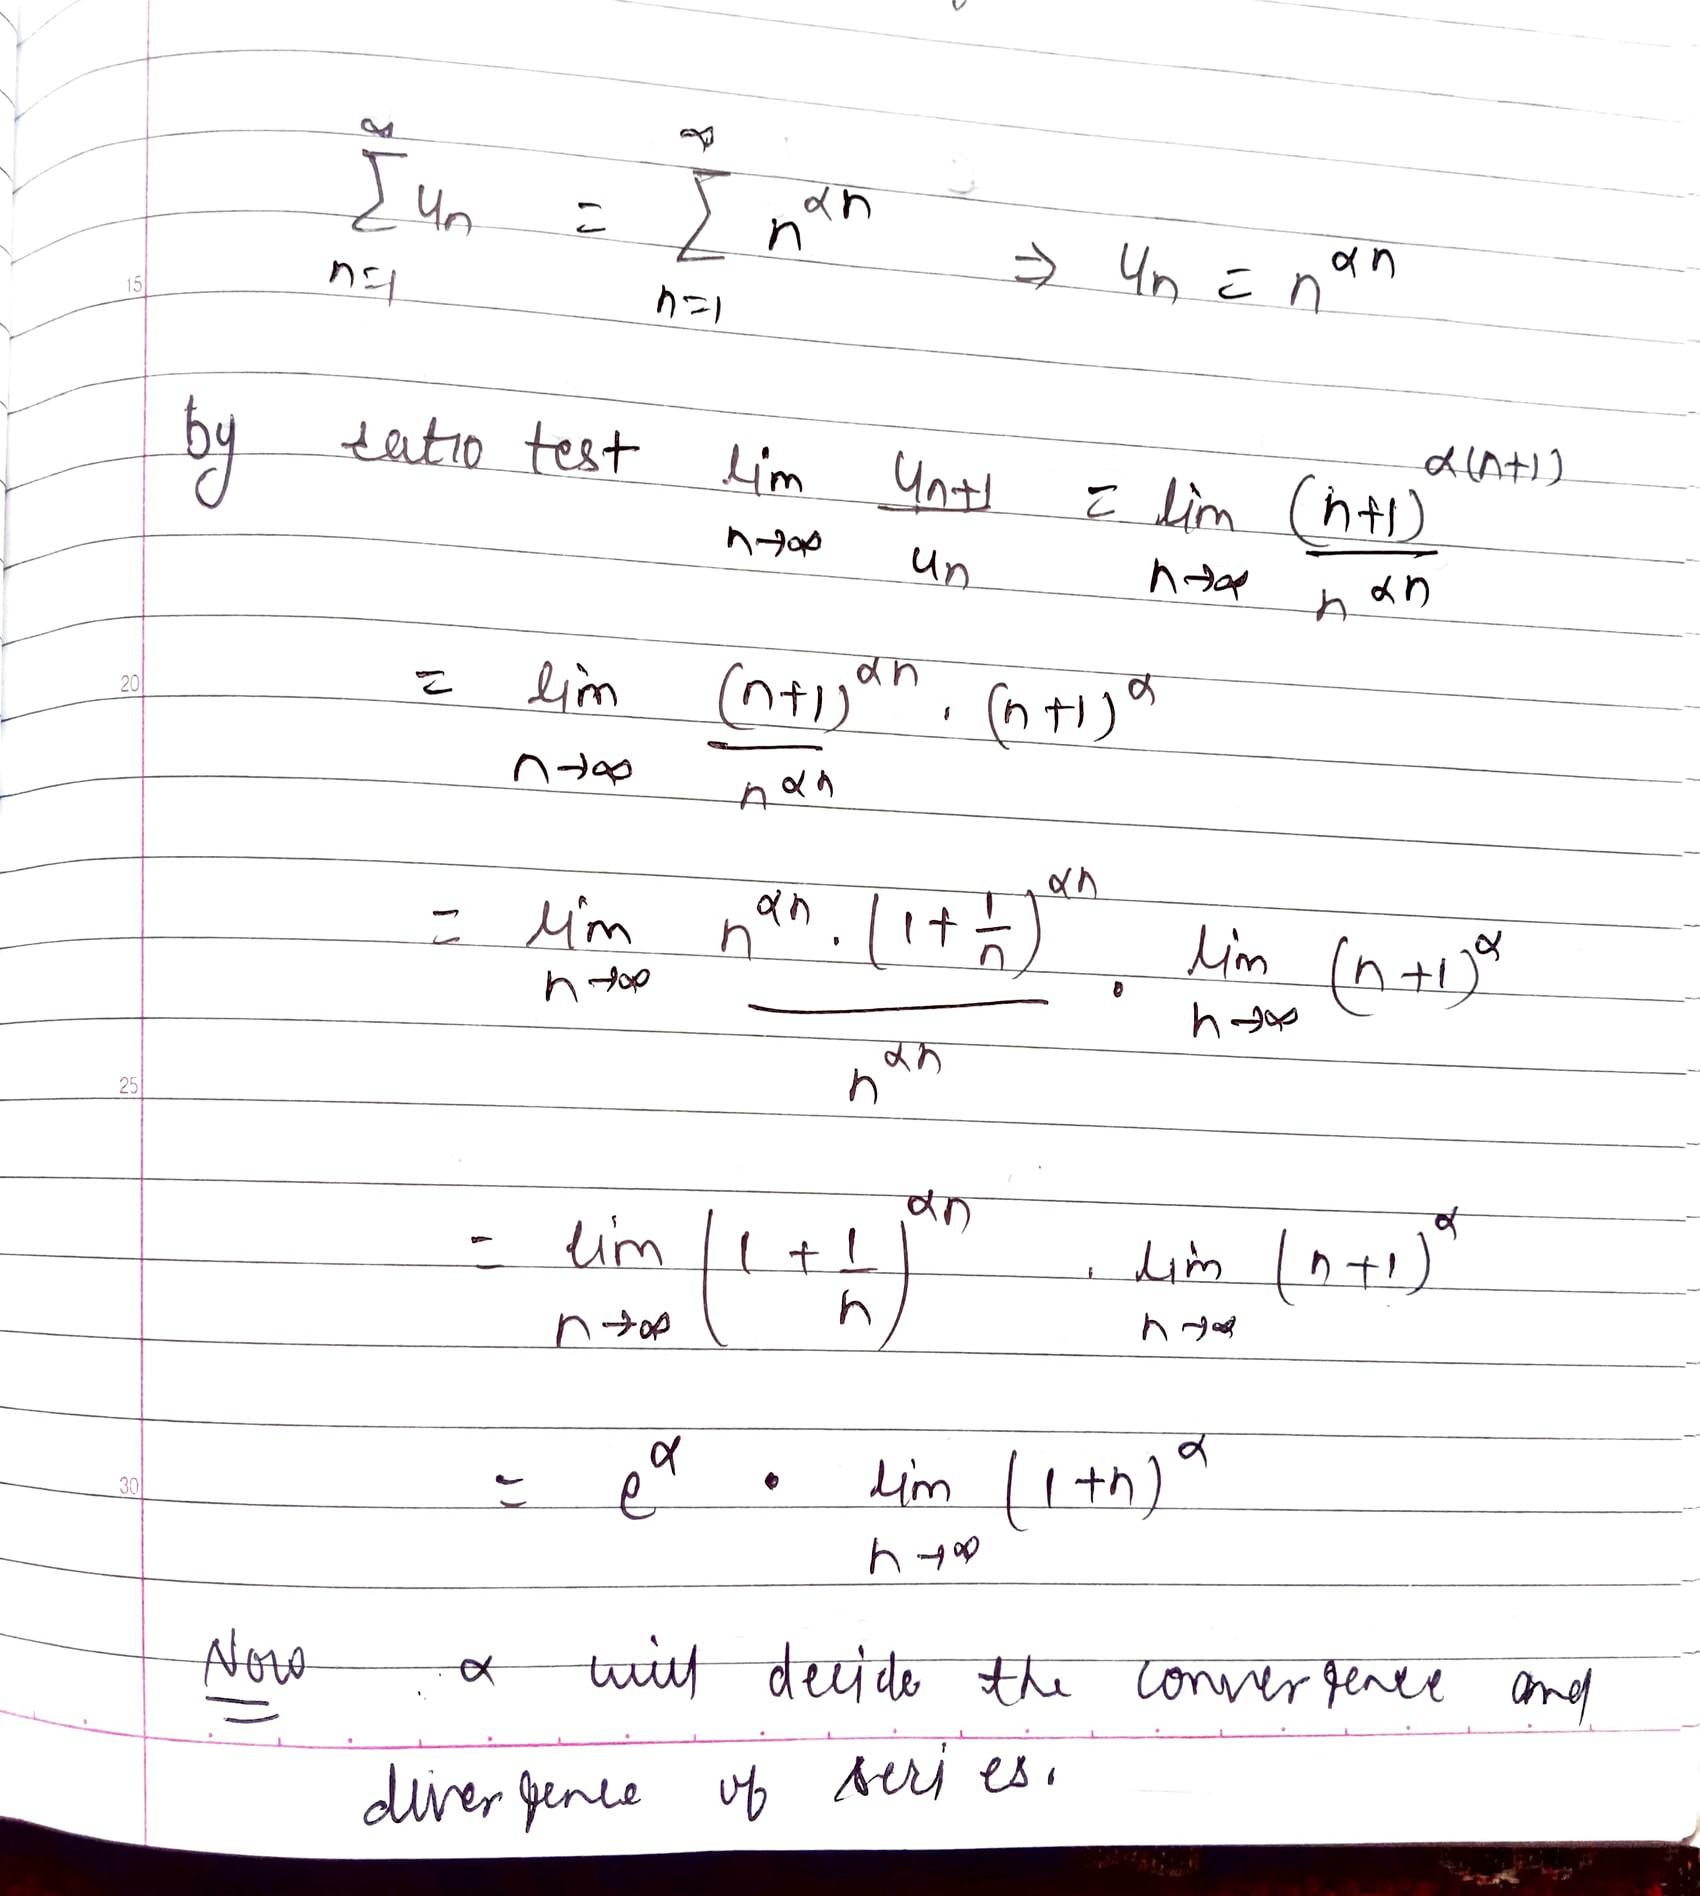 ∞ ∞
Σ uₙ = Σ n^{αn} ⇒ uₙ = n^{αn}
n=1 n=1
15
by ratio test lim_{n→∞} u_{n+1}/u_n = lim_{n→∞} (n+1)^{α(n+1)}/n^{αn}
20
= lim_{n→∞} (n+1)^{αn}/n^{αn} . (n+1)^α
= lim_{n→∞} n^{αn} . (1 + 1/n)^{αn}/n^{αn} . lim_{n→∞} (n+1)^α
25
= lim_{n→∞} (1 + 1/n)^{αn} . lim_{n→∞} (n+1)^α
30
= e^α • lim_{n→∞} (1+n)^α
Now α will decide the convergence and
divergence of series.